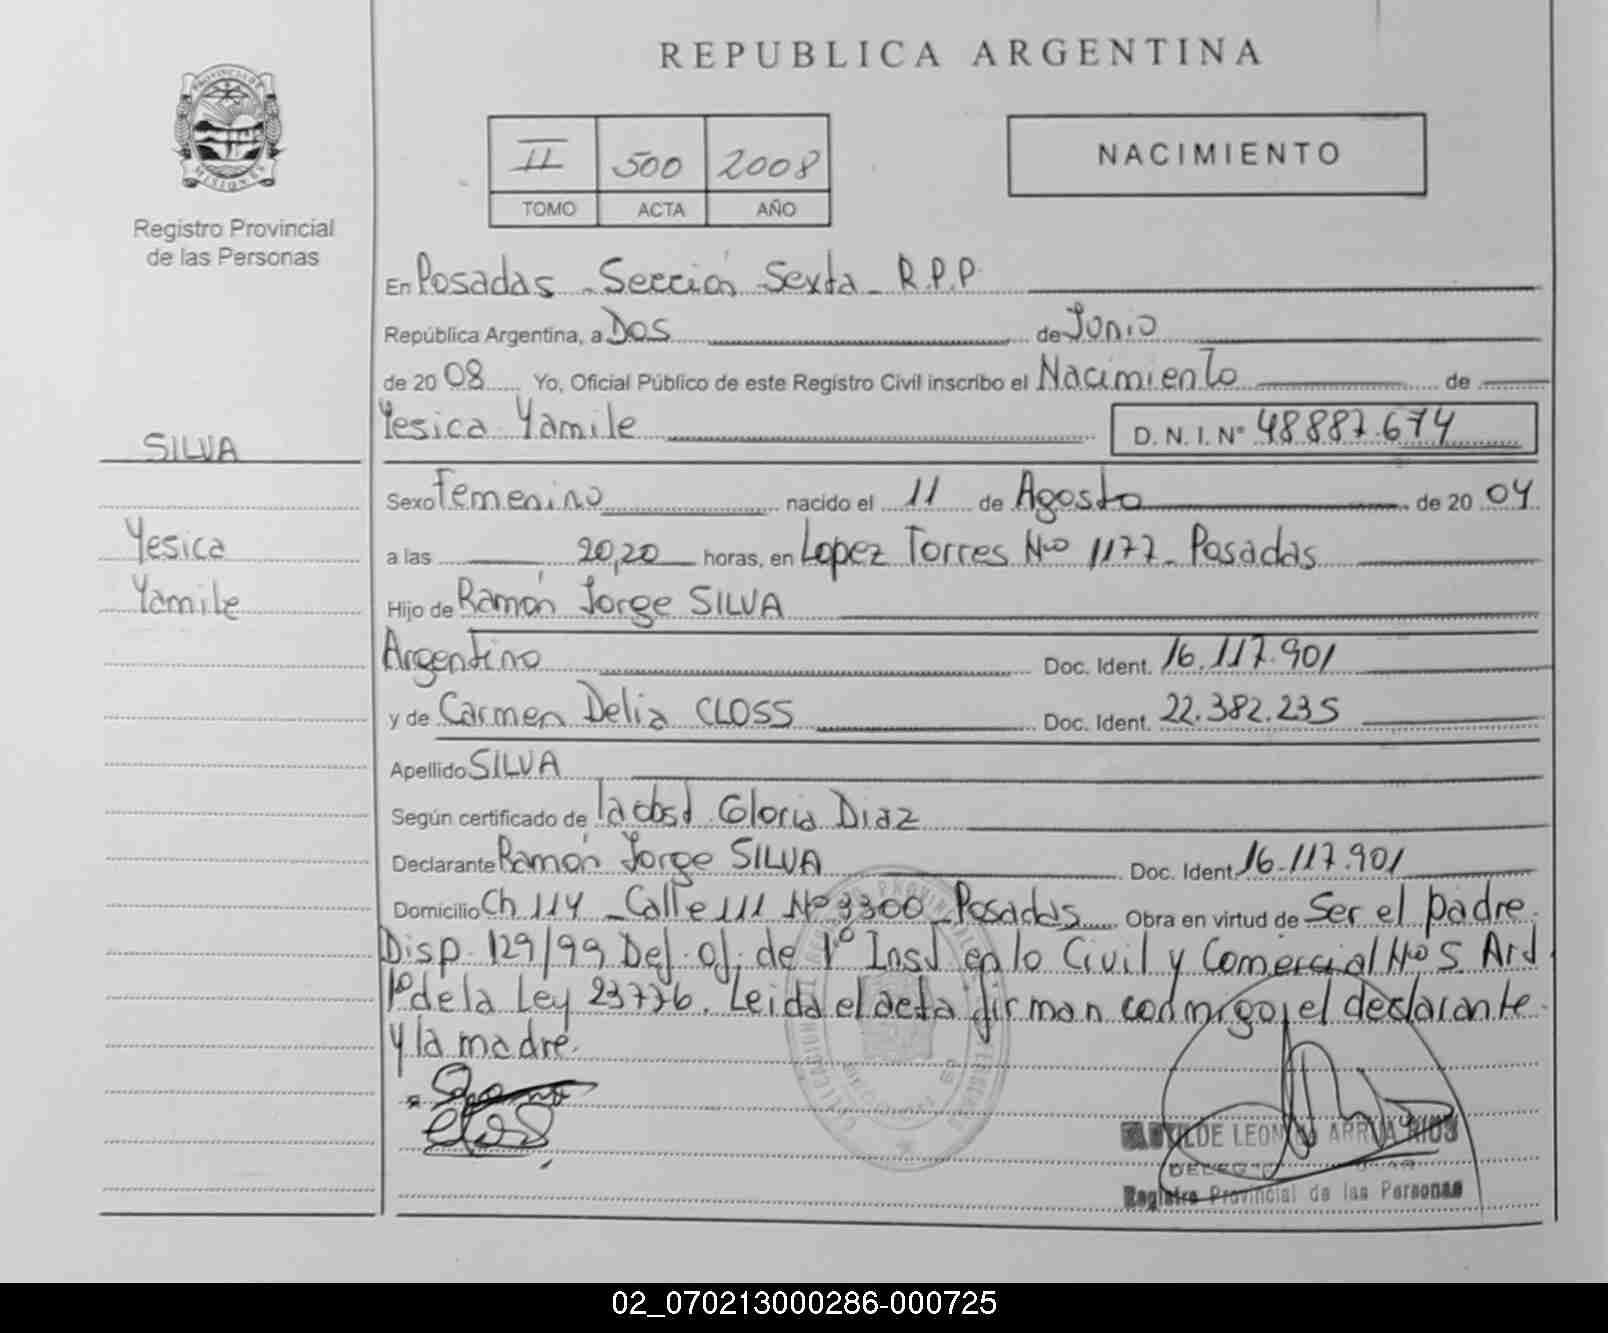 REPUBLICA ARGENTINA
PROVINCIA DE
MISIONES
Registro Provincial
de las Personas
II 500 2008
TOMO ACTA AÑO
NACIMIENTO
En Posadas - Sección Sexta - R.P.P.
República Argentina, a Dos de Junio
de 20 08 Yo, Oficial Público de este Registro Civil inscribo el Nacimiento de
Yesica Yamile D. N. I. N° 48887.674
SILVA
Sexo Femenino nacido el 11 de Agosto de 20 04
Yesica
a las 20,20 horas, en Lopez Torres Nº 1177 - Posadas
Yamile
Hijo de Ramón Jorge SILVA
Argentino Doc. Ident. 16.117.901
y de Carmen Delia CLOSS Doc. Ident. 22.382.235
Apellido SILVA
Según certificado de la obst Gloria Diaz
Declarante Ramón Jorge SILVA Doc. Ident. 16.117.901
Domicilio Ch 114 - Calle 111 Nº 3300 - Posadas Obra en virtud de Ser el padre.
Disp. 129/99 Def. Of. de 1º Inst en lo Civil y Comercial Nº 5. Art
1º de la Ley 23776. Leida el acta firman conmigo, el declarante
y la madre.
ARRUA RIOS
Registro Provincial de las Personas
02_070213000286-000725